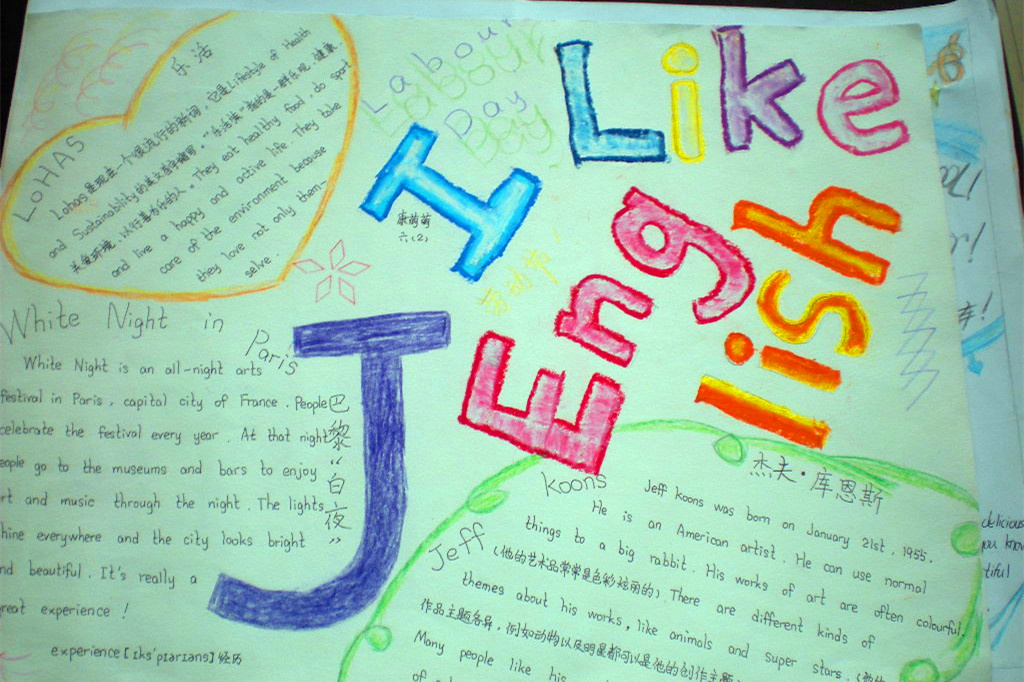 LOHAS
乐活
Lohas 是现在一个很流行的新词，它是Lifestyle of Health
and Sustainability的英文首字缩写。"乐活族"指的是一群乐观、健康、
关爱环境，以行善为乐的人。They eat healthy food, do sport
and live a happy and active life. They take
care of the environment because
they love not only them-
selve.
Labour
Day
劳动节!
I
康萌萌
六(2)
Like
Eng
lish
White Night in
Paris
White Night is an all-night arts
festival in Paris, capital city of France. People
celebrate the festival every year. At that night
people go to the museums and bars to enjoy
art and music through the night. The lights
shine everywhere and the city looks bright
and beautiful. It's really a
great experience!
experience[iks'piərians]经历
巴黎"白夜"
J
Jeff
Koons
杰夫·库恩斯
Jeff Koons was born on January 21st, 1955.
He is an American artist. He can use normal
things to a big rabbit. His works of art are often colourful.
(他的艺术品常常是色彩炫丽的). There are different kinds of
themes about his works, like animals and super stars. (他的
作品主题各异，例如动物以及明星都可以是他的创作主题
Many people like his
delicious
you know